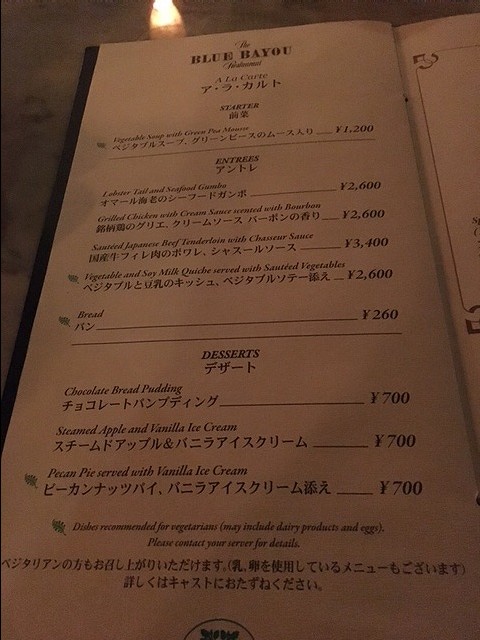 The
BLUE BAYOU
Restaurant
A La Carte
ア・ラ・カルト
STARTER
前菜
Vegetable Soup with Green Pea Mousse
ベジタブルスープ、グリーンピースのムース入り ¥1,200
ENTREES
アントレ
Lobster Tail and Seafood Gumbo
オマール海老のシーフードガンボ ¥2,600
Grilled Chicken with Cream Sauce scented with Bourbon
銘柄鶏のグリエ、クリームソース バーボンの香り ¥2,600
Sautéed Japanese Beef Tenderloin with Chasseur Sauce
国産牛フィレ肉のポワレ、シャスールソース ¥3,400
Vegetable and Soy Milk Quiche served with Sautéed Vegetables
ベジタブルと豆乳のキッシュ、ベジタブルソテー添え ¥2,600
Bread
パン ¥260
DESSERTS
デザート
Chocolate Bread Pudding
チョコレートパンプディング ¥700
Steamed Apple and Vanilla Ice Cream
スチームドアップル&バニラアイスクリーム ¥700
Pecan Pie served with Vanilla Ice Cream
ピーカンナッツパイ、バニラアイスクリーム添え ¥700
Dishes recommended for vegetarians (may include dairy products and eggs).
Please contact your server for details.
ベジタリアンの方もお召し上がりいただけます。(乳、卵を使用しているメニューもございます)
詳しくはキャストにおたずねください。